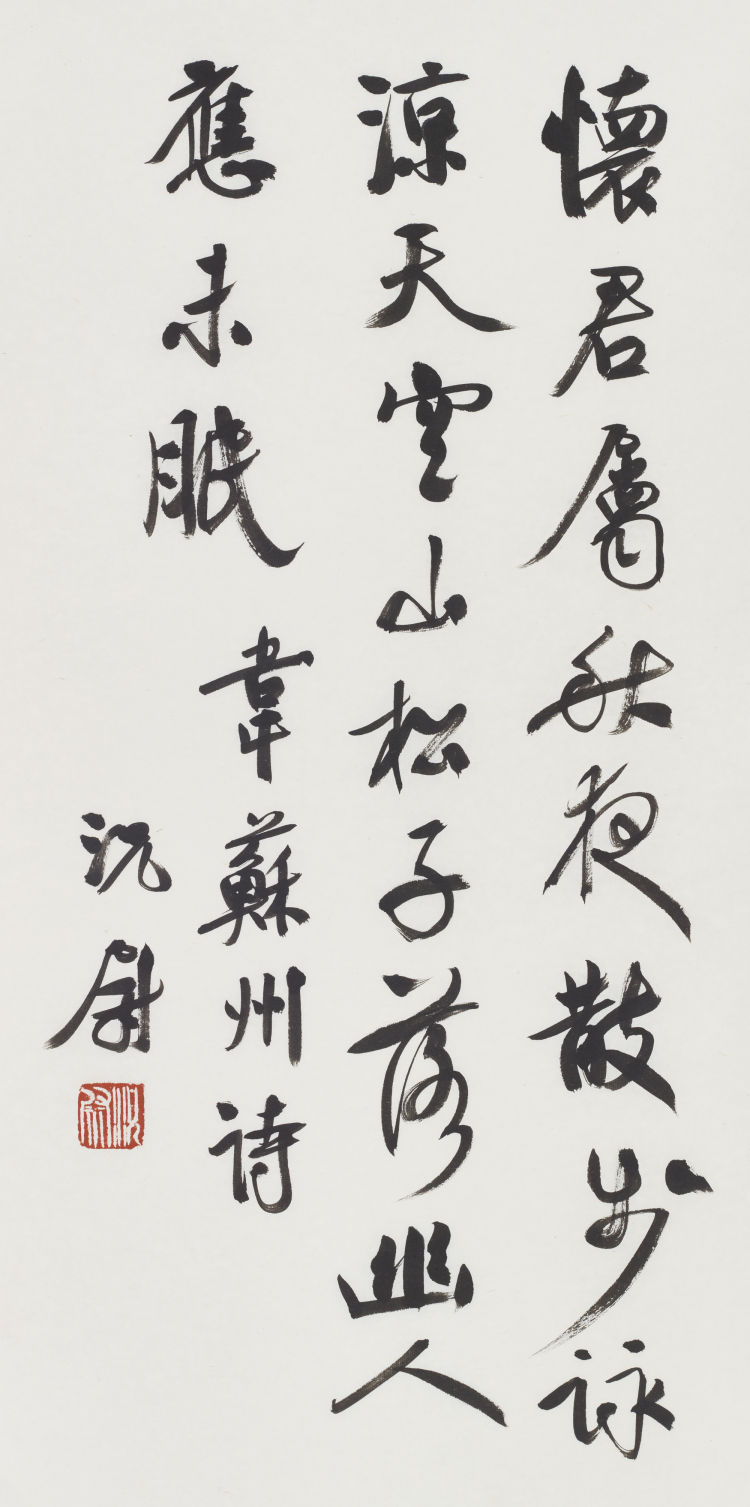 懷君屬秋夜散步詠
涼天空山松子落幽人
應未眠 韋蘇州詩